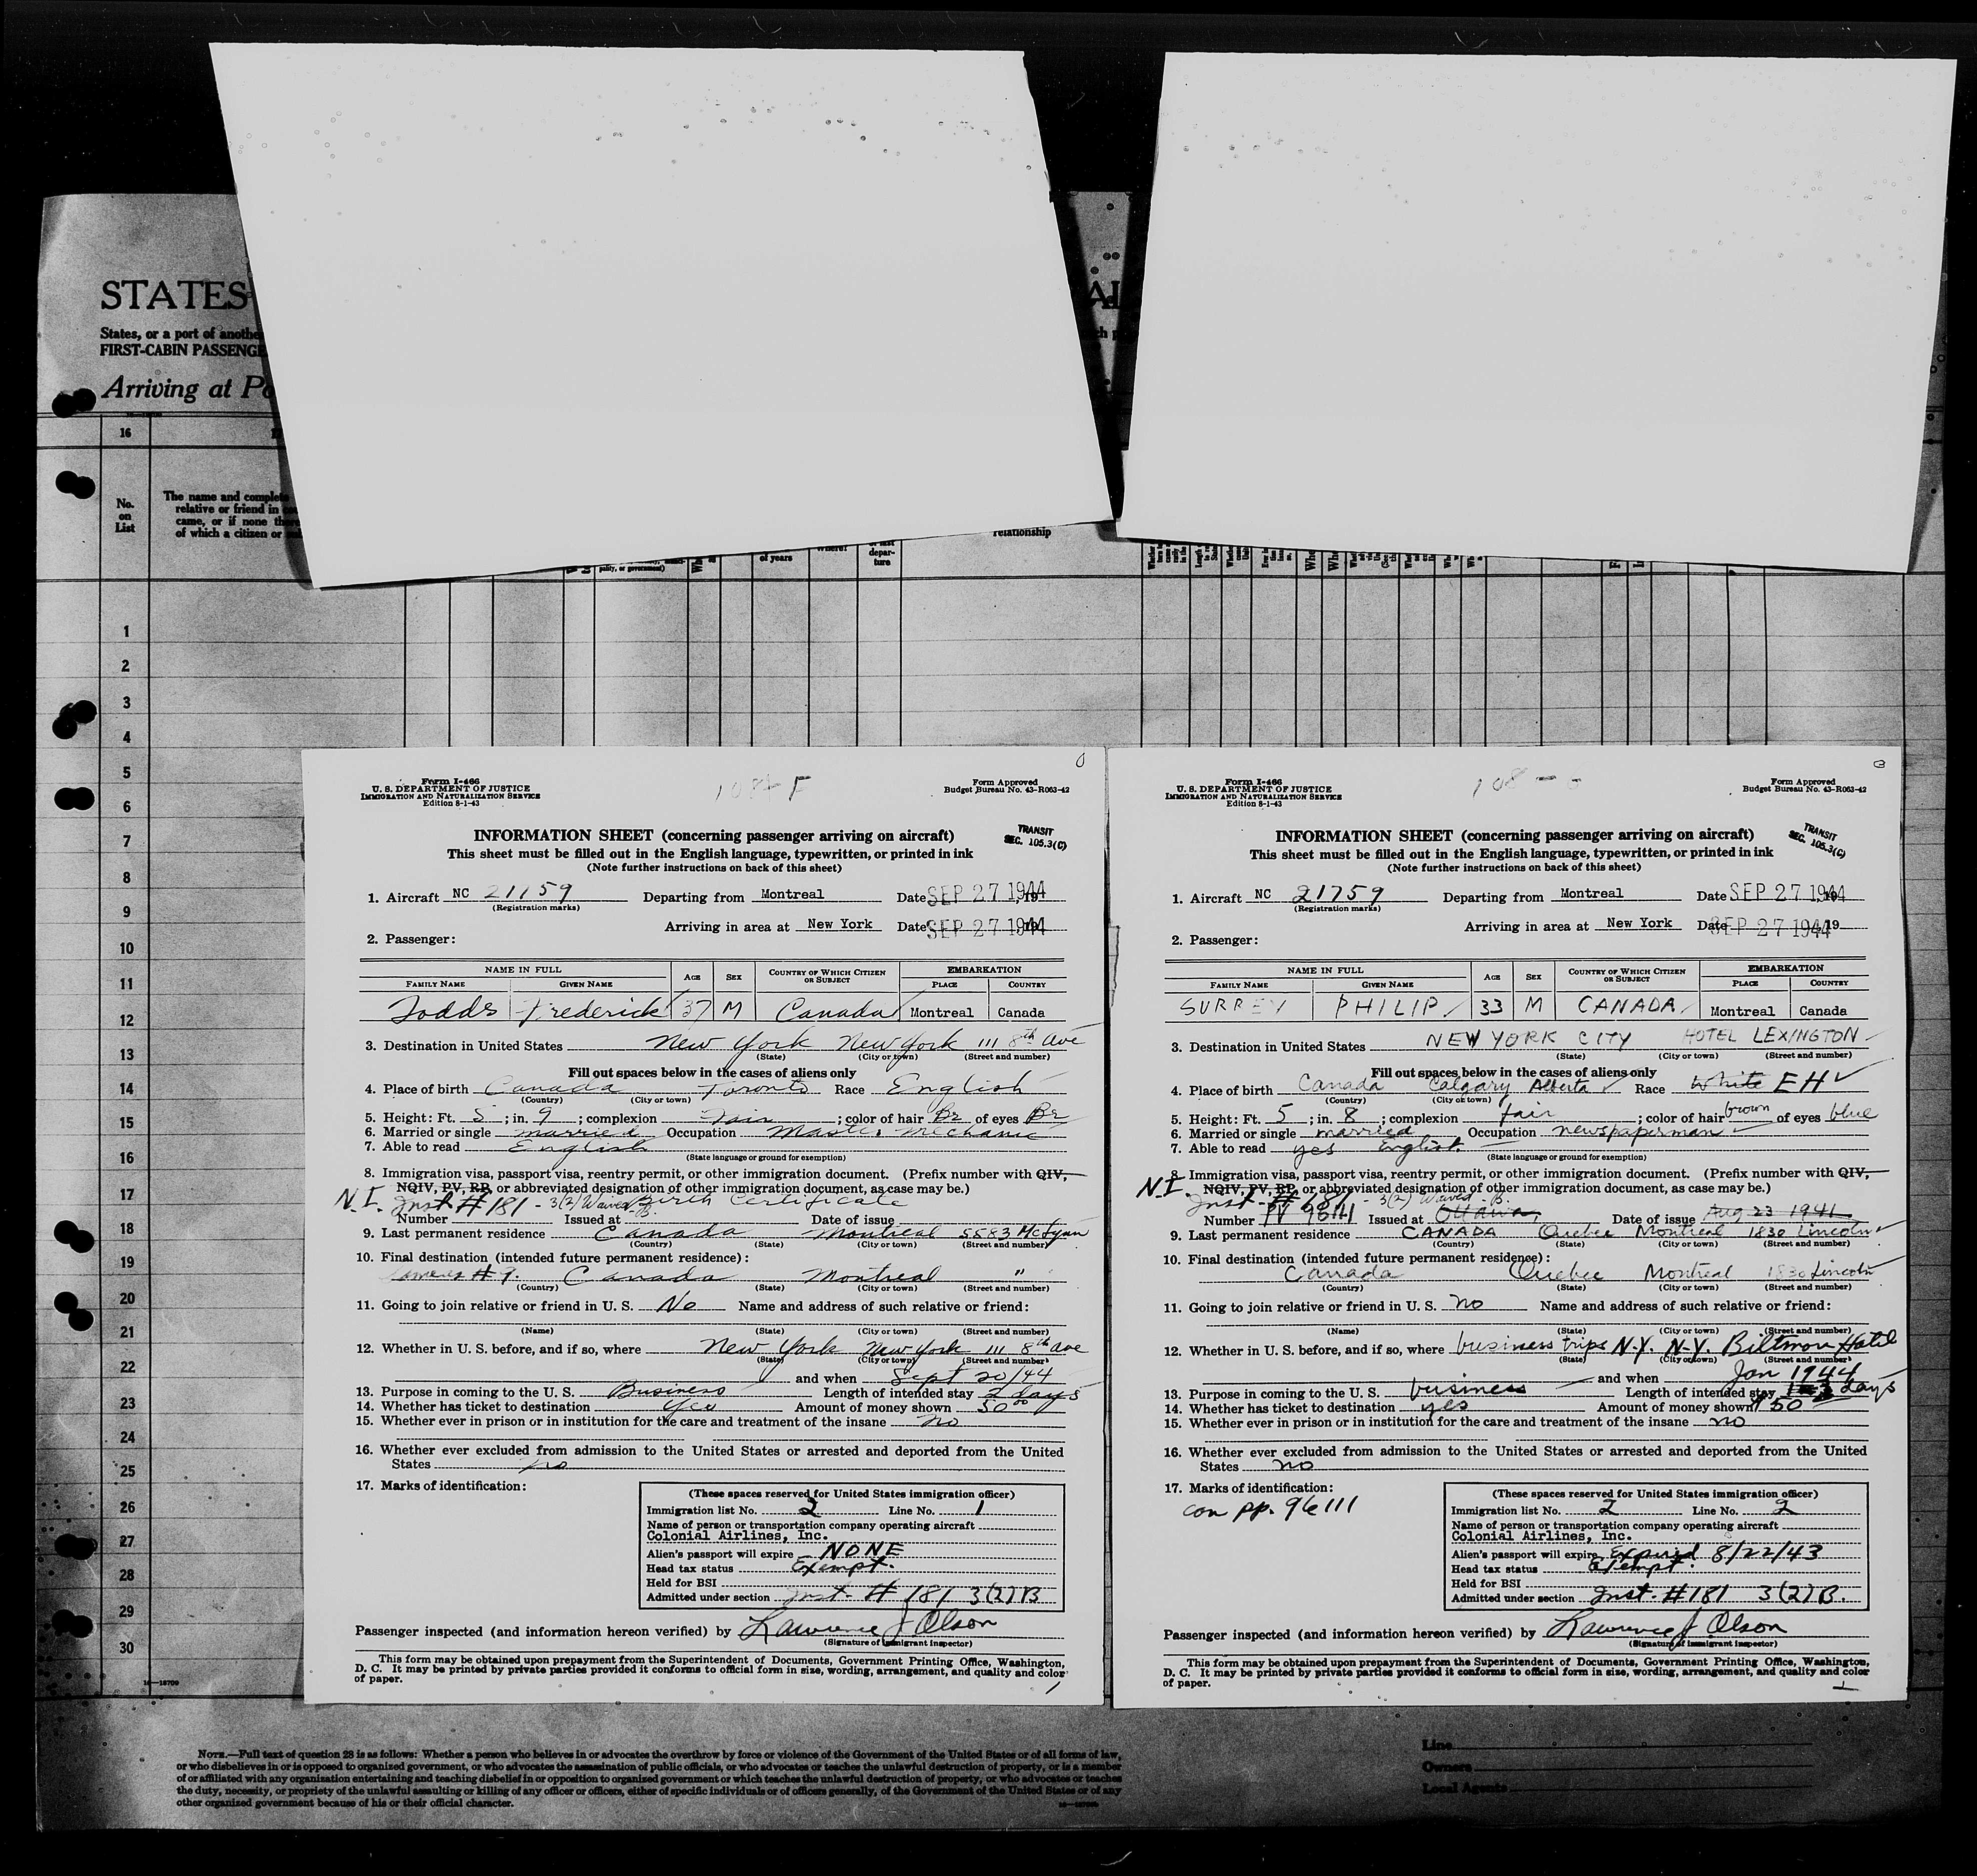 STATES
AL
States, or a port of anothe
FIRST-CABIN PASSENGE
Arriving at Po
16
No.
on
List
The name and complet
relative or friend in
came, or if none ther
of which a citizen or
pality, or government)
of years
where?
last
depar-
ture
relationship
1
2
3
4
5
6
7
8
9
10
11
12
13
14
15
16
17
18
19
20
21
22
23
24
25
26
27
28
29
30
Form I-466
U. S. DEPARTMENT OF JUSTICE
IMMIGRATION AND NATURALIZATION SERVICE
Edition 8-1-43
108-F
Form Approved
Budget Bureau No. 43-R063-42
INFORMATION SHEET (concerning passenger arriving on aircraft)
TRANSIT
SEC. 105.3(C)
This sheet must be filled out in the English language, typewritten, or printed in ink
(Note further instructions on back of this sheet)
1. Aircraft NC 21759 Departing from Montreal Date SEP 27 1944
(Registration marks)
Arriving in area at New York Date SEP 27 1944
2. Passenger:
NAME IN FULL AGE SEX COUNTRY OF WHICH CITIZEN OR SUBJECT EMBARKATION
FAMILY NAME GIVEN NAME PLACE COUNTRY
Dodds Frederick 37 M Canada Montreal Canada
3. Destination in United States New York New York 111 8th Ave
(State) (City or town) (Street and number)
Fill out spaces below in the cases of aliens only
4. Place of birth Canada Toronto Race English
(Country) (City or town)
5. Height: Ft. 5; in. 9; complexion Fair; color of hair Br of eyes Br
6. Married or single married Occupation Master mechanic
7. Able to read English
(State language or ground for exemption)
8. Immigration visa, passport visa, reentry permit, or other immigration document. (Prefix number with QIV,
NQIV, PV, RP, or abbreviated designation of other immigration document, as case may be.)
N.I. Inst # 181 - 3(2) Waived - B. Birth Certificate
Number Issued at Date of issue
9. Last permanent residence Canada Montreal 5583 McLynn
(Country) (State) (City or town) (Street and number)
10. Final destination (intended future permanent residence):
same as # 9. Canada Montreal "
(Country) (State) (City or town) (Street and number)
11. Going to join relative or friend in U. S. No Name and address of such relative or friend:
(Name) (State) (City or town) (Street and number)
12. Whether in U. S. before, and if so, where New York New York 111 8th ave
(State) (City or town) (Street and number)
and when Sept 20/44
13. Purpose in coming to the U. S. Business Length of intended stay 2 days
14. Whether has ticket to destination Yes Amount of money shown 50.00
15. Whether ever in prison or in institution for the care and treatment of the insane no
16. Whether ever excluded from admission to the United States or arrested and deported from the United
States no
17. Marks of identification:
(These spaces reserved for United States immigration officer)
Immigration list No. 2 Line No. 1
Name of person or transportation company operating aircraft
Colonial Airlines, Inc.
Alien's passport will expire NONE
Head tax status Exempt.
Held for BSI
Admitted under section Inst. # 181 3(2)B
Passenger inspected (and information hereon verified) by Lawrence J Olson
(Signature of immigrant inspector)
This form may be obtained upon prepayment from the Superintendent of Documents, Government Printing Office, Washington,
D. C. It may be printed by private parties provided it conforms to official form in size, wording, arrangement, and quality and color
of paper.
1
Form I-466
U. S. DEPARTMENT OF JUSTICE
IMMIGRATION AND NATURALIZATION SERVICE
Edition 8-1-43
108 -
Form Approved
Budget Bureau No. 43-R063-42
INFORMATION SHEET (concerning passenger arriving on aircraft)
TRANSIT
SEC. 105.3(C)
This sheet must be filled out in the English language, typewritten, or printed in ink
(Note further instructions on back of this sheet)
1. Aircraft NC 21759 Departing from Montreal Date SEP 27 1944
(Registration marks)
Arriving in area at New York Date SEP 27 1944 19
2. Passenger:
NAME IN FULL AGE SEX COUNTRY OF WHICH CITIZEN OR SUBJECT EMBARKATION
FAMILY NAME GIVEN NAME PLACE COUNTRY
SURREY PHILIP 33 M CANADA Montreal Canada
3. Destination in United States NEW YORK CITY HOTEL LEXINGTON
(State) (City or town) (Street and number)
Fill out spaces below in the cases of aliens only
4. Place of birth Canada Calgary Alberta Race White EH
(Country) (City or town)
5. Height: Ft. 5; in. 8; complexion fair; color of hair brown of eyes blue
6. Married or single married Occupation newspaperman
7. Able to read yes English.
(State language or ground for exemption)
8. Immigration visa, passport visa, reentry permit, or other immigration document. (Prefix number with QIV,
NQIV, PV, RP, or abbreviated designation of other immigration document, as case may be.)
N.I. Inst - # 181 - 3(2) Waived - B.
Number PV 96111 Issued at Ottawa, Date of issue Aug 23 1941
9. Last permanent residence CANADA Quebec Montreal 1830 Lincoln
(Country) (State) (City or town) (Street and number)
10. Final destination (intended future permanent residence):
Canada Quebec Montreal 1830 Lincoln
(Country) (State) (City or town) (Street and number)
11. Going to join relative or friend in U. S. no Name and address of such relative or friend:
(Name) (State) (City or town) (Street and number)
12. Whether in U. S. before, and if so, where business trips N.Y. N.Y. Biltmore Hotel
(State) (City or town) (Street and number)
and when Jan 1944
13. Purpose in coming to the U. S. business Length of intended stay 3 days
14. Whether has ticket to destination yes Amount of money shown $50
15. Whether ever in prison or in institution for the care and treatment of the insane no
16. Whether ever excluded from admission to the United States or arrested and deported from the United
States no
17. Marks of identification:
can pp. 96111
(These spaces reserved for United States immigration officer)
Immigration list No. 2 Line No. 2
Name of person or transportation company operating aircraft
Colonial Airlines, Inc.
Alien's passport will expire Expired 8/22/43
Head tax status exempt.
Held for BSI
Admitted under section Inst. #181 3(2)B.
Passenger inspected (and information hereon verified) by Lawrence J Olson
(Signature of immigrant inspector)
This form may be obtained upon prepayment from the Superintendent of Documents, Government Printing Office, Washington,
D. C. It may be printed by private parties provided it conforms to official form in size, wording, arrangement, and quality and color
of paper.
16—18700
NOTE.—Full text of question 28 is as follows: Whether a person who believes in or advocates the overthrow by force or violence of the Government of the United States or of all forms of law,
or who disbelieves in or is opposed to organized government, or who advocates the assassination of public officials, or who advocates or teaches the unlawful destruction of property, or is a member
of or affiliated with any organization entertaining and teaching disbelief in or opposition to organized government or which teaches the unlawful destruction of property, or who advocates or teaches
the duty, necessity, or propriety of the unlawful assaulting or killing of any officer or officers, either of specific individuals or of officers generally, of the Government of the United States or of any
other organized government because of his or their official character.
Line
Owners
Local Agents